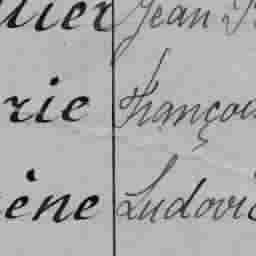 llier Jean
rie Françoi
ène Ludovic